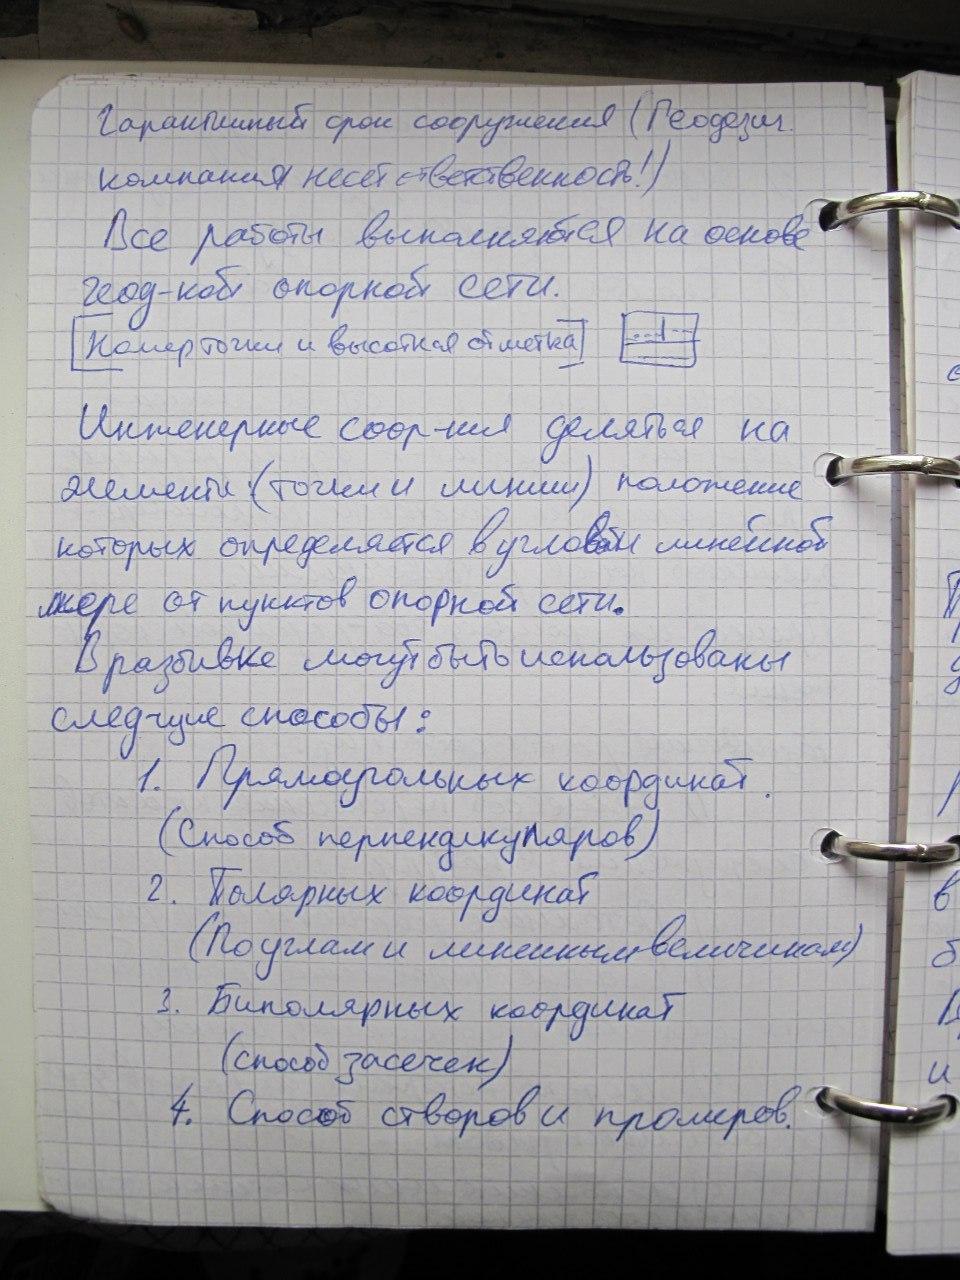 Гарантийный срок сооружения (Геодезич.
компания несёт ответственность!)
Все работы выполняются на основе
геод-кой опорной сети.
[Номер точки и высотная отметка]
Инженерные соор-ния деляться на
элементы (точки и линии) положение
которых определяется в угловой и линейной
мере от пунктов опорной сети.
В разбивке могут быть использованы
следущие способы:
1. Прямоугольных координат.
(Способ перпендикуляров)
2. Полярных координат
(По углам и линейным величинам)
3. Биполярных координат
(способ засечек)
4. Способ створов и промеров.